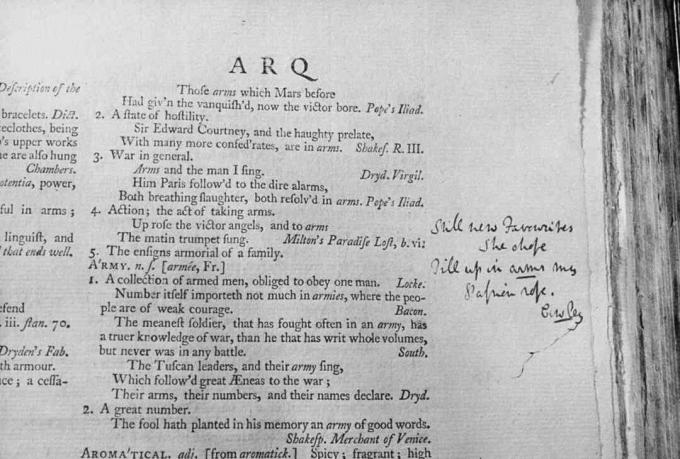 ARQ
Description of the
bracelets. Dict.
eclothes, being
's upper works
e are also hung
Chambers.
otentia, power,
ful in arms;
linguist, and
that ends well.
efend
. iii. stan. 70.
Dryden's Fab.
th armour.
ce; a cessa-
Those arms which Mars before
Had giv'n the vanquish'd, now the victor bore. Pope's Iliad.
2. A state of hostility.
Sir Edward Courtney, and the haughty prelate,
With many more confed'rates, are in arms. Shakes. R. III.
3. War in general.
Arms and the man I sing. Dryd. Virgil.
Him Paris follow'd to the dire alarms,
Both breathing slaughter, both resolv'd in arms. Pope's Iliad.
4. Action; the act of taking arms.
Up rose the victor angels, and to arms
The matin trumpet sung. Milton's Paradise Lost, b. vi:
5. The ensigns armorial of a family.
A'RMY. n. s. [armée, Fr.]
1. A collection of armed men, obliged to obey one man. Locke.
Number itself importeth not much in armies, where the peo-
ple are of weak courage. Bacon.
The meanest soldier, that has fought often in an army, has
a truer knowledge of war, than he that has writ whole volumes,
but never was in any battle. South.
The Tuscan leaders, and their army sing,
Which follow'd great Æneas to the war;
Their arms, their numbers, and their names declare. Dryd.
2. A great number.
The fool hath planted in his memory an army of good words.
Shakesp. Merchant of Venice.
AROMA'TICAL. adj. [from aromatick.] Spicy; fragrant; high
Still new Favourites
She chose
Till up in arms my
Passion rose.
Cowley